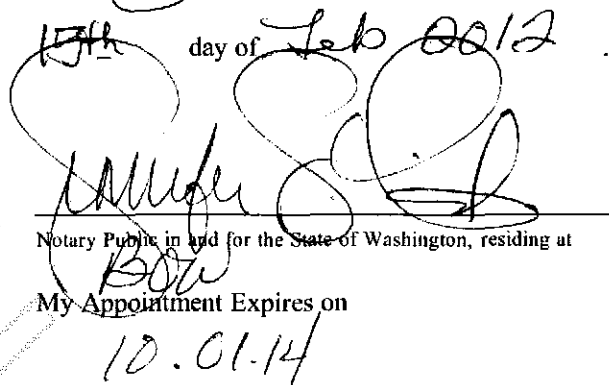 15th day of Feb 2012.
Notary Public in and for the State of Washington, residing at
BOW
My Appointment Expires on
10.01.14